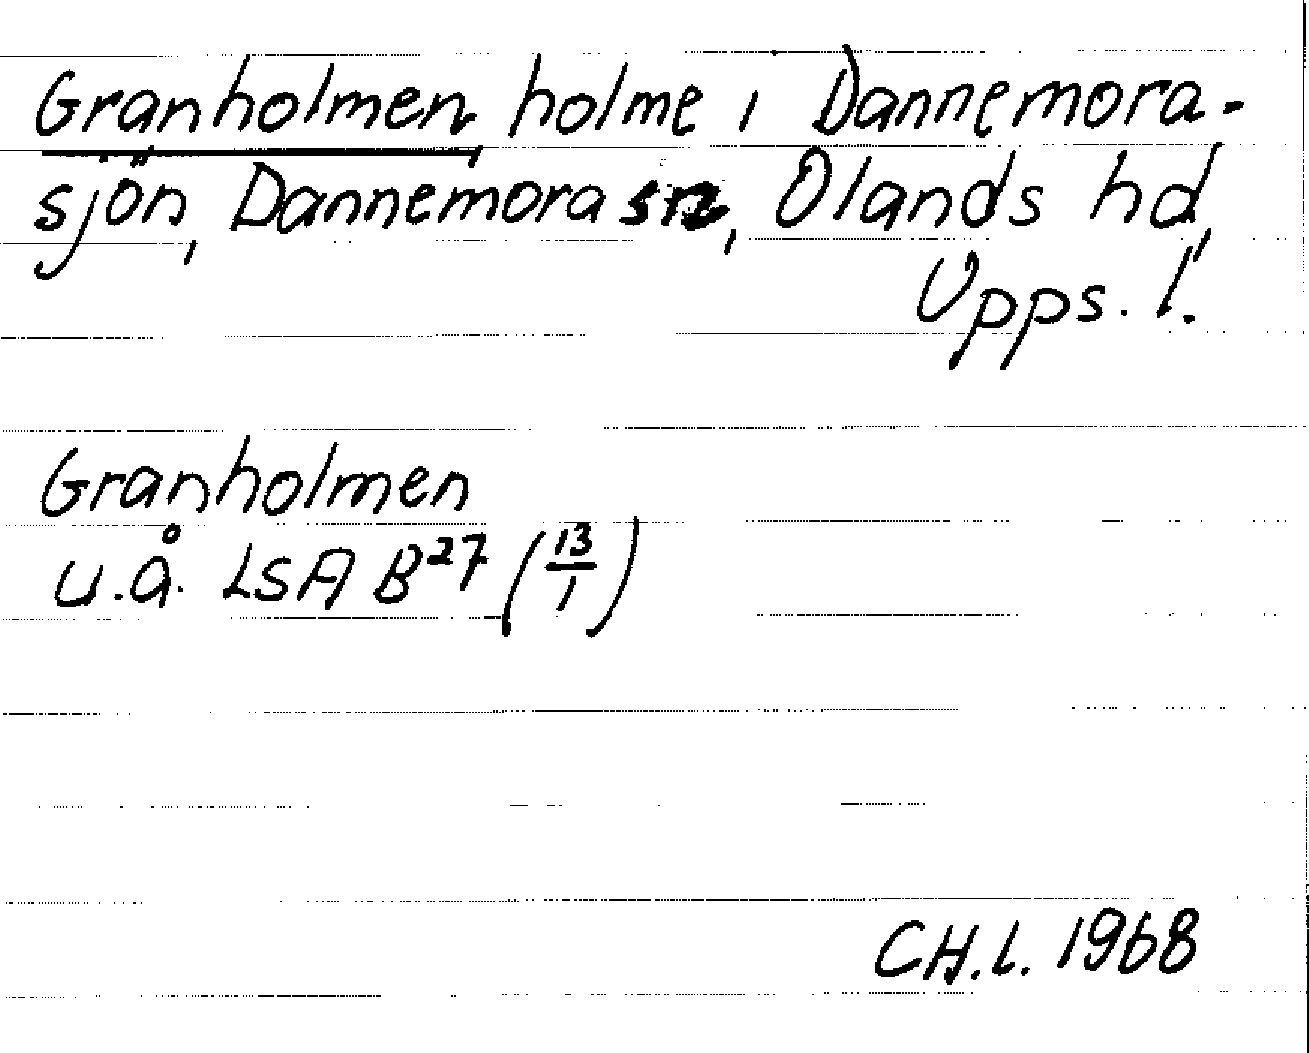 Granholmen, holme i Dannemora-
sjön, Dannemora sn, Olands hd,
Upps. l.
Granholmen
u.å. LSA B²⁷ (13/1)
CH.l. 1968